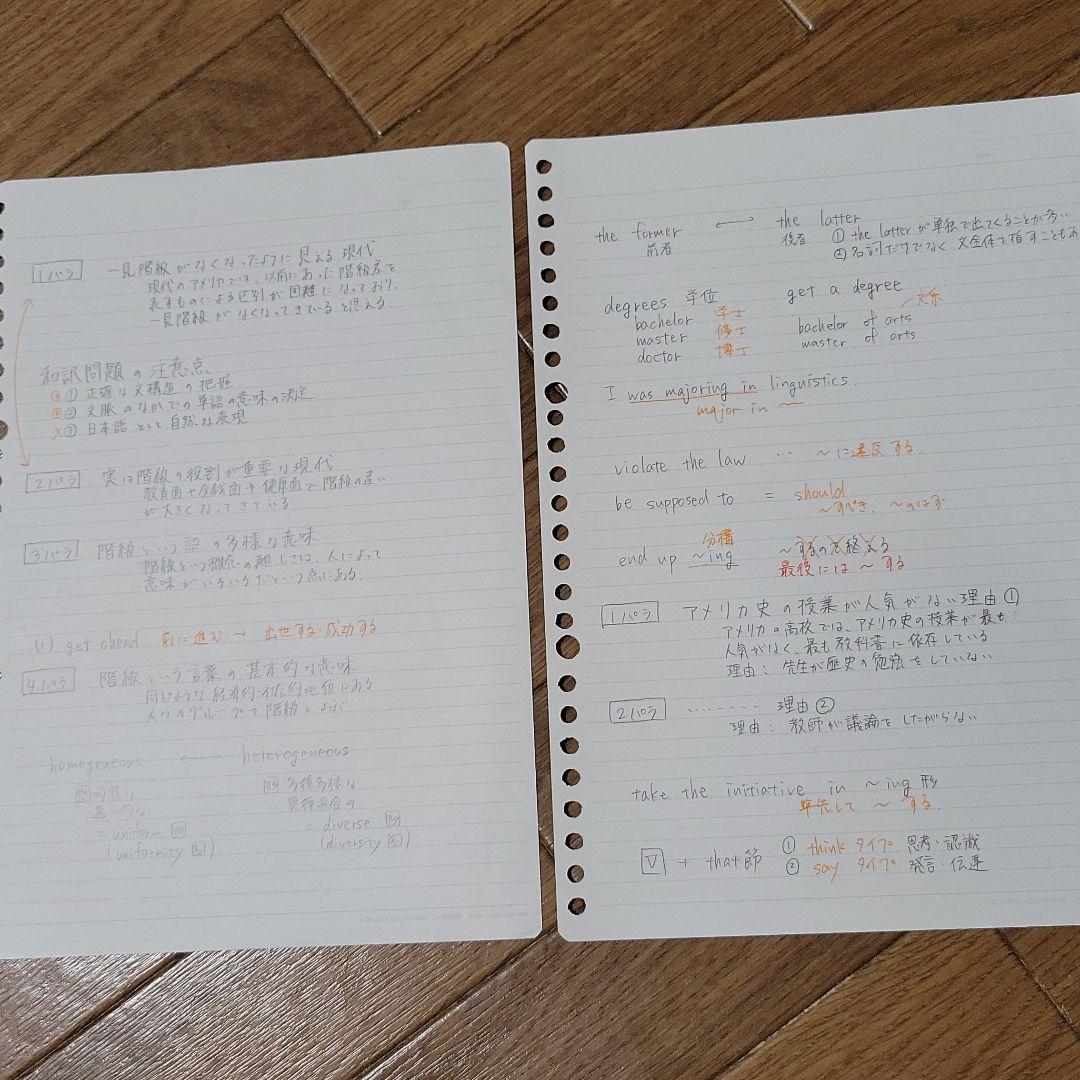 1パラ 一見階級がなくなったように見える現代
現代のアメリカでは、以前にあった階級差を
表すものによる区別が困難になっており、
一見階級がなくなってきていると思える
和訳問題の注意点
① 正確な文構造の把握
② 文脈のなかでの単語の意味の決定
× ③ 日本語として自然な表現
2パラ 実は階級の役割が重要な現代
教育面や金銭面や健康面で階級の違い
が大きくなってきている
3パラ 階級という語の多様な意味
階級という概念の難しさは、人によって
意味がいろいろだという点にある。
(1) get ahead 前に進む → 出世する・成功する
4パラ 階級という言葉の基本的な意味
同じような経済的・社会的地位にある
人々のグループを階級とよぶ
homogeneous ←→ heterogeneous
均質な
画一的な
= uniform
(uniformity 名)
多種多様な
異種混合の
= diverse
(diversity 名)
the former ←→ the latter
前者 後者 ① the latterが単独で出てくることが多い
② 名詞だけでなく文全体を指すことも
degrees 学位 get a degree
文系
bachelor 学士 bachelor of arts
master 修士 master of arts
doctor 博士
I was majoring in linguistics.
major in 〜
violate the law … 〜に違反する
be supposed to = should
〜すべき、〜のはず
分構
end up 〜ing 〜するのを終える
最後には〜する
1パラ アメリカ史の授業が人気がない理由①
アメリカの高校では、アメリカ史の授業が最も
人気がなく、最も教科書に依存している
理由：先生が歴史の勉強をしていない
2パラ ‥‥‥‥ 理由②
理由：教師が議論をしたがらない
take the initiative in 〜ing形
率先して〜する。
V + that節 ① think タイプ 思考・認識
② say タイプ 発言・伝達